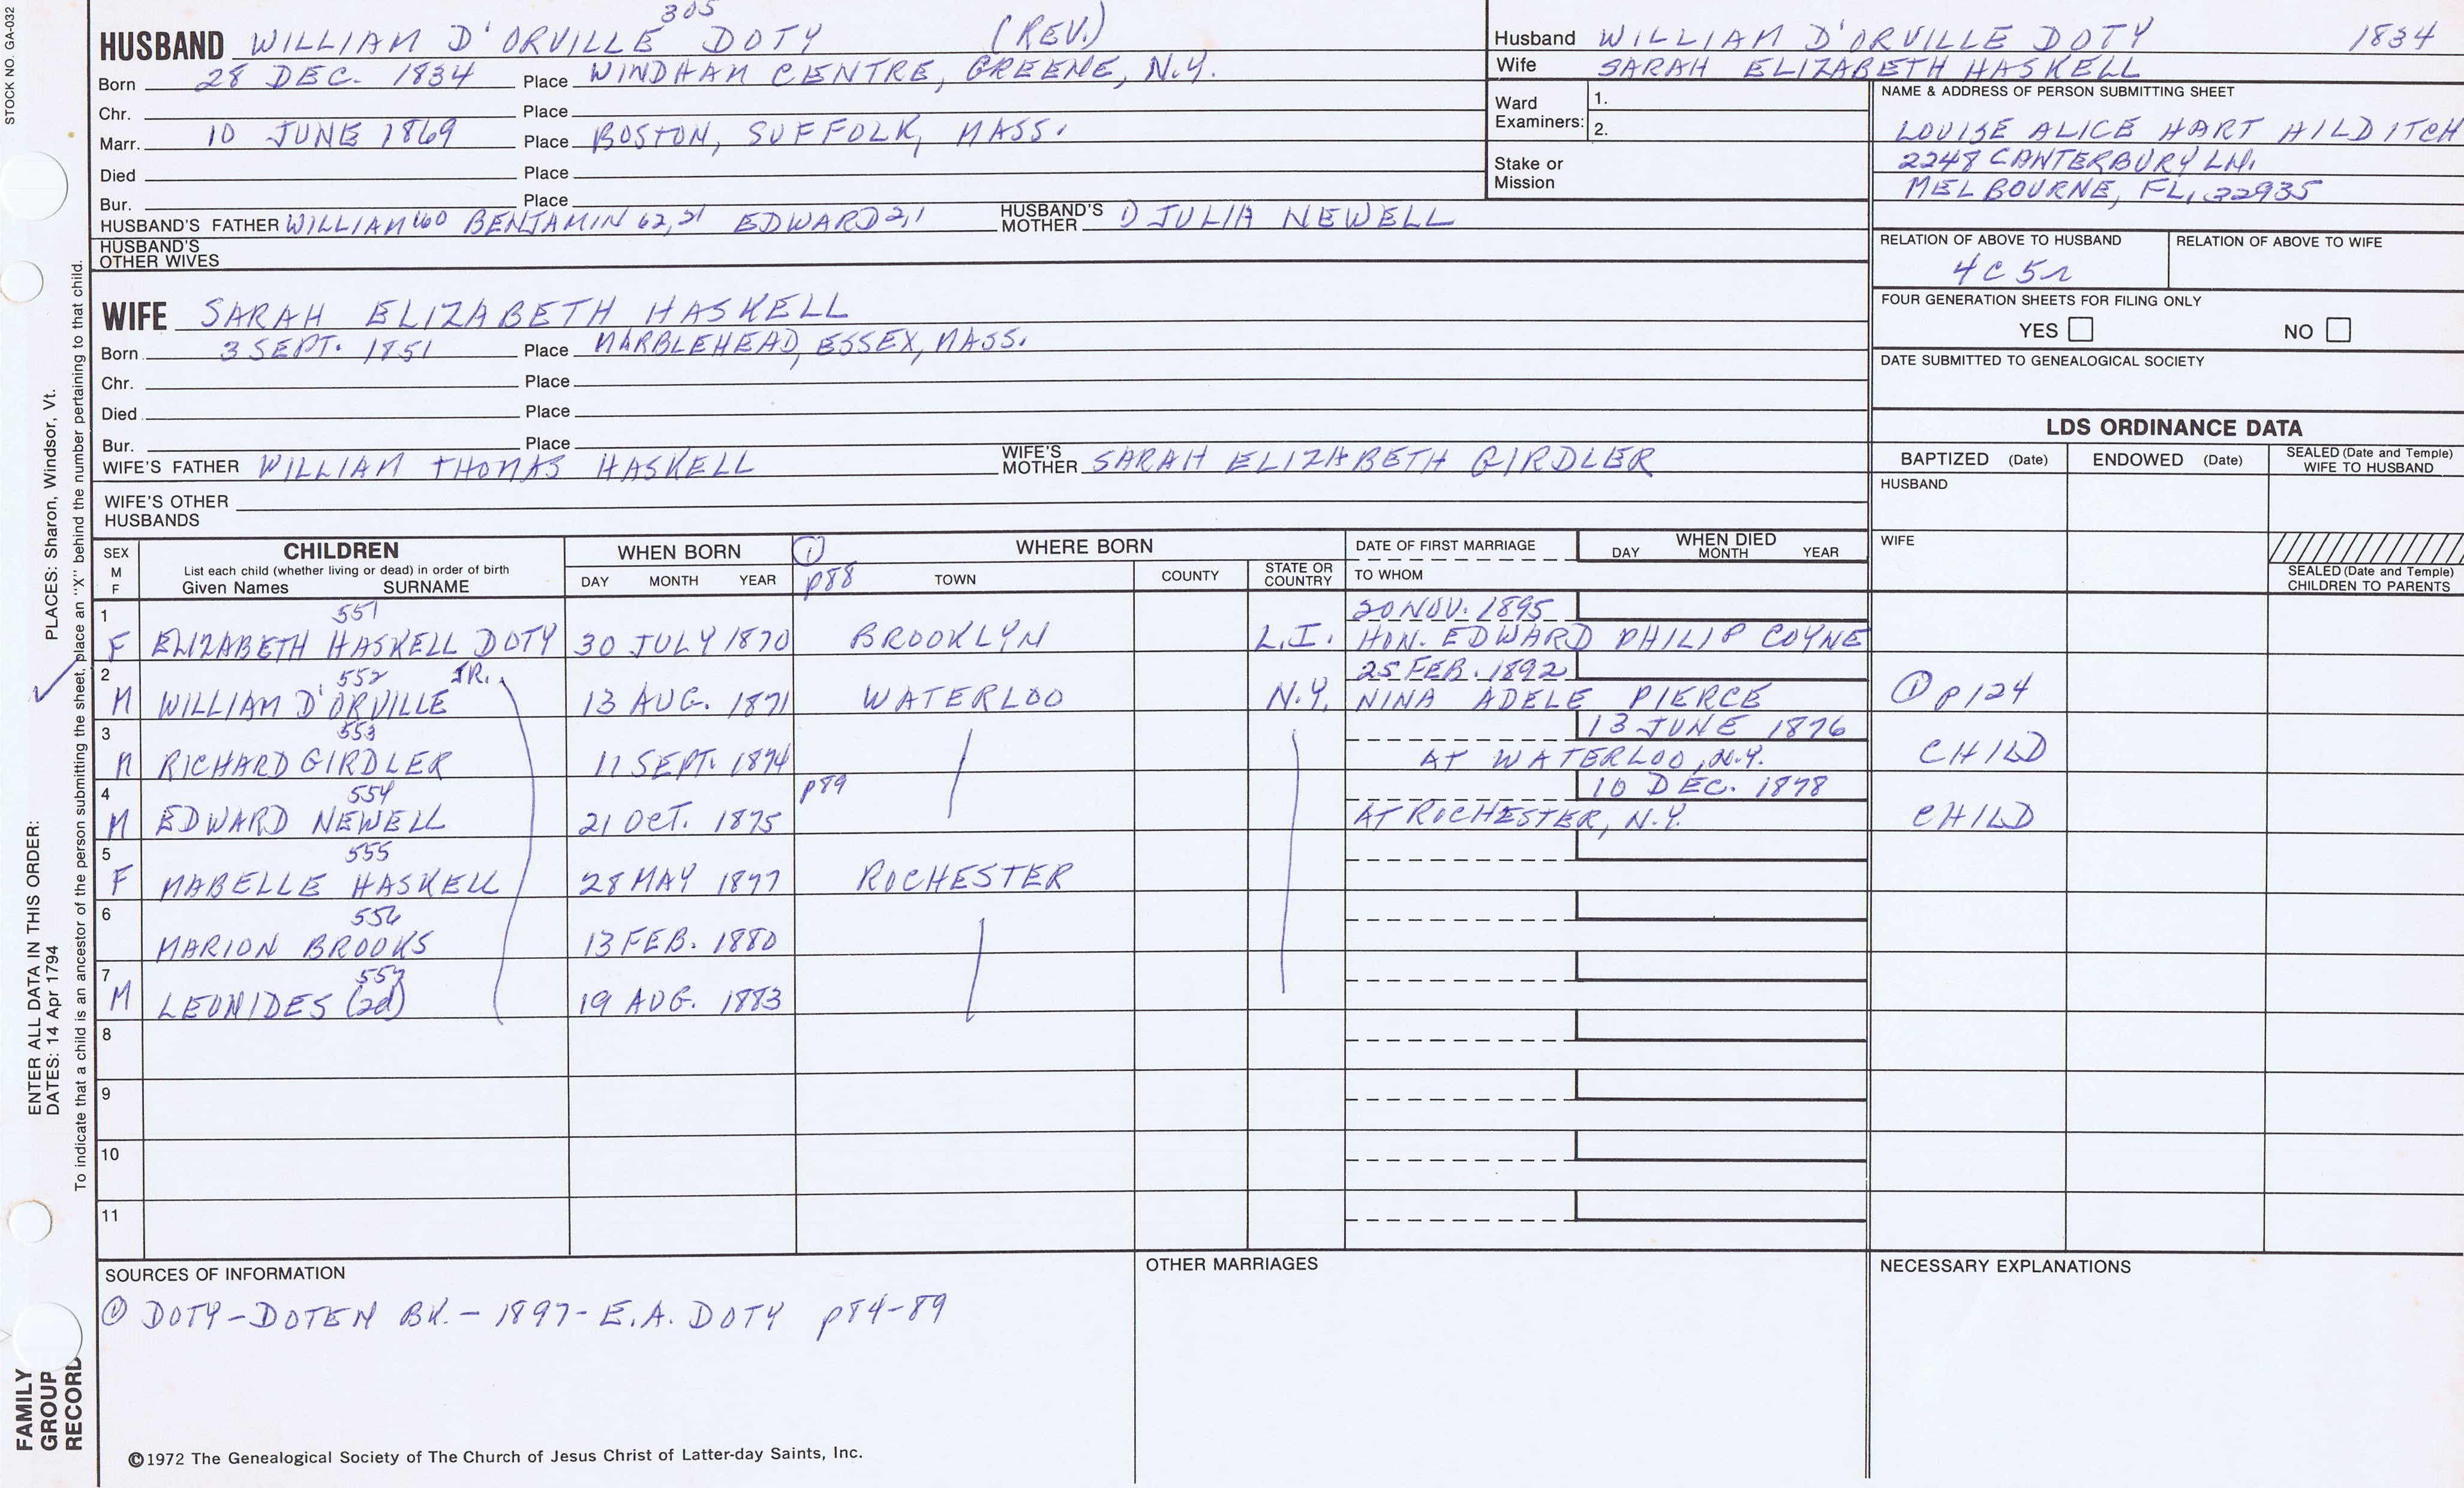 STOCK NO. GA-032
305
HUSBAND WILLIAM D'ORVILLE DOTY (REV.)
Born 28 DEC. 1834 Place WINDHAM CENTRE, GREENE, N.Y.
Chr. Place
Marr. 10 JUNE 1869 Place BOSTON, SUFFOLK, MASS.
Died Place
Bur. Place
HUSBAND'S FATHER WILLIAM 160 BENJAMIN 62,21 EDWARD 2,1 HUSBAND'S MOTHER 1) JULIA NEWELL
HUSBAND'S OTHER WIVES
Husband WILLIAM D'ORVILLE DOTY 1834
Wife SARAH ELIZABETH HASKELL
Ward Examiners: 1.
2.
Stake or Mission
NAME & ADDRESS OF PERSON SUBMITTING SHEET
LOUISE ALICE HART HILDITCH
2248 CANTERBURY LN.
MELBOURNE, FL, 32935
RELATION OF ABOVE TO HUSBAND RELATION OF ABOVE TO WIFE
4C5r
FOUR GENERATION SHEETS FOR FILING ONLY
YES NO
DATE SUBMITTED TO GENEALOGICAL SOCIETY
WIFE SARAH ELIZABETH HASKELL
Born 3 SEPT. 1851 Place MARBLEHEAD, ESSEX, MASS.
Chr. Place
Died Place
Bur. Place
WIFE'S FATHER WILLIAM THOMAS HASKELL WIFE'S MOTHER SARAH ELIZABETH GIRDLER
WIFE'S OTHER HUSBANDS
LDS ORDINANCE DATA
BAPTIZED (Date) ENDOWED (Date) SEALED (Date and Temple) WIFE TO HUSBAND
HUSBAND
WIFE
SEALED (Date and Temple) CHILDREN TO PARENTS
SEX M F CHILDREN List each child (whether living or dead) in order of birth Given Names SURNAME
WHEN BORN DAY MONTH YEAR
① p88 WHERE BORN TOWN COUNTY STATE OR COUNTRY
DATE OF FIRST MARRIAGE TO WHOM
WHEN DIED DAY MONTH YEAR
1 551 20 NOV. 1895
F ELIZABETH HASKELL DOTY 30 JULY 1870 BROOKLYN L.I. HON. EDWARD PHILIP COYNE
2 552 JR. 25 FEB. 1892
M WILLIAM D'ORVILLE 13 AUG. 1871 WATERLOO N.Y. NINA ADELE PIERCE ① p124
3 553 13 JUNE 1876
M RICHARD GIRDLER 11 SEPT. 1874 AT WATERLOO, N.Y. CHILD
4 554 p89 10 DEC. 1878
M EDWARD NEWELL 21 OCT. 1875 AT ROCHESTER, N.Y. CHILD
5 555
F MABELLE HASKELL 28 MAY 1877 ROCHESTER
6 556
MARION BROOKS 13 FEB. 1880
7 557
M LEONIDES (2d) 19 AUG. 1883
8
9
10
11
SOURCES OF INFORMATION
① DOTY-DOTEN BK. - 1897- E.A. DOTY p84-89
OTHER MARRIAGES
NECESSARY EXPLANATIONS
©1972 The Genealogical Society of The Church of Jesus Christ of Latter-day Saints, Inc.
ENTER ALL DATA IN THIS ORDER:
DATES: 14 Apr 1794 PLACES: Sharon, Windsor, Vt.
To indicate that a child is an ancestor of the person submitting the sheet, place an "X" behind the number pertaining to that child.
FAMILY
GROUP
RECORD